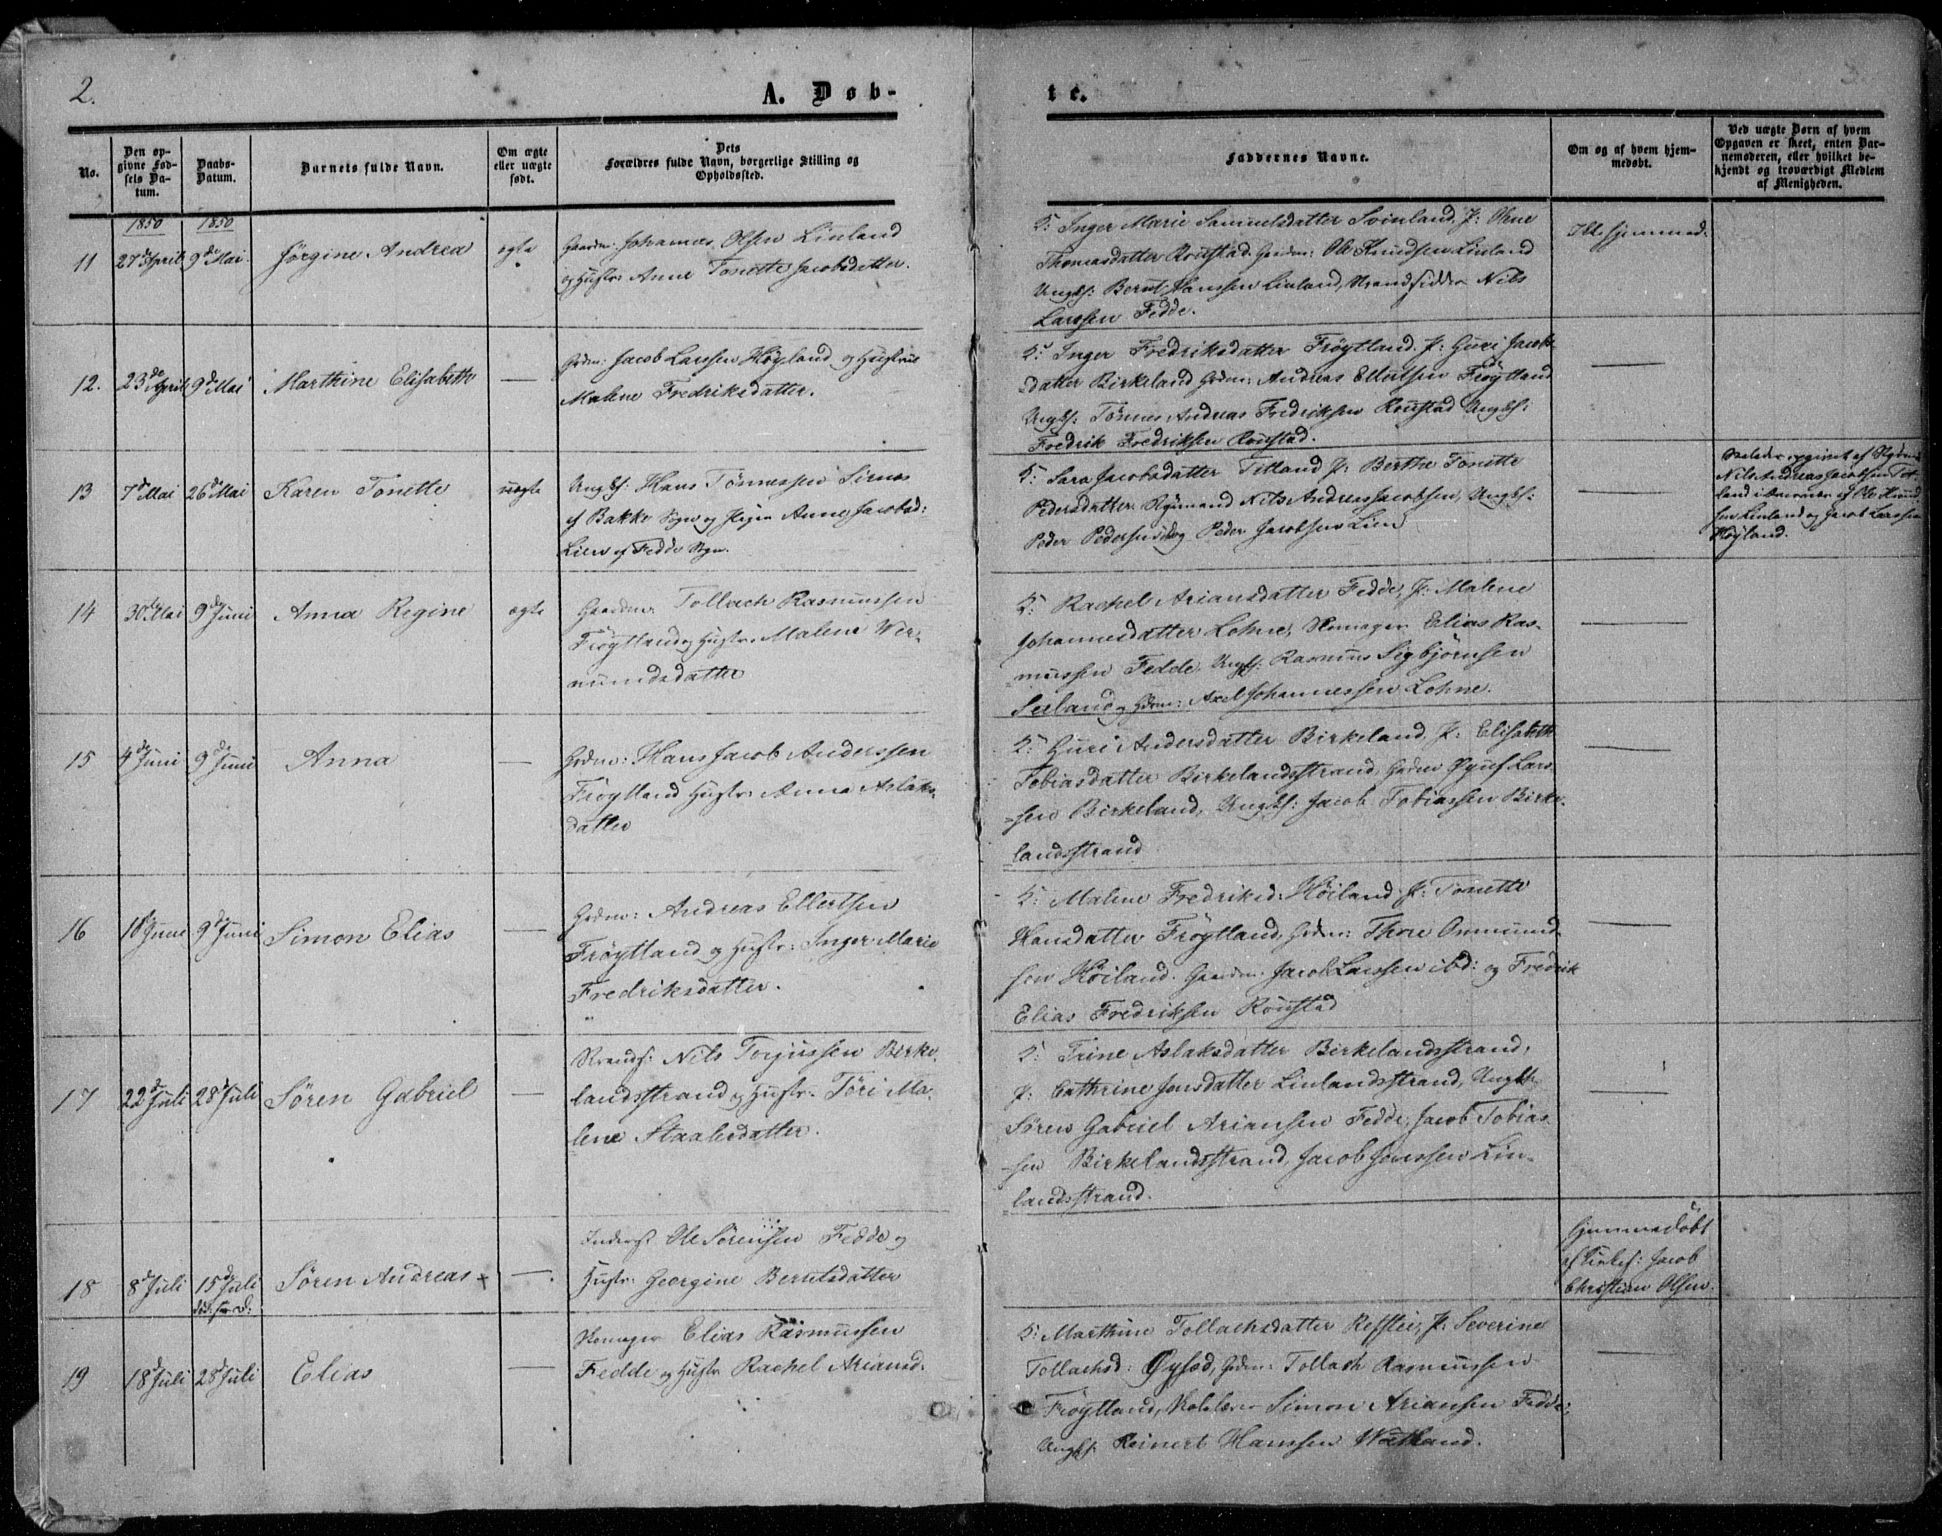 2.
A. Døb-
te.
No.
Den op-
givne Fød-
sels Da-
tum.
Daabs-
Datum.
Barnets fulde Navn.
Om ægte
eller uægte
født.
Dets
Forældres fulde Navn, borgerlige Stilling og
Opholdssted.
Faddernes Navne.
Om og af hvem hjem-
medøbt.
Ved uægte Børn af hvem
Opgaven er skeet, enten Bar-
nemoderen, eller hvilket be-
kjendt og troværdigt Medlem
af Menigheden.
1850
1850
11
27d April
9d Mai
Jørgine Andrea
ægte
Gaardm: Johannes Olsen Linland
og Hustr: Anne Tonette Jacobsdatter.
K: Inger Marie Samuelsdatter Svinland, P:
Thomasdatter Røiestad. Gardm: Ole Knudsen Linland
Ungks: Bernt Hanssen Linland, Strandsidder Nils
Larssen Fedde.
Ikke hjemmed.
12.
23de April
9d Mai
Marthine Elisabeth
—
Grdm: Jacob Larssen Høyland og Hustrue
Malene Fredriksdatter.
K: Inger Fredriksdatter Frøytland. P: Guri Jacobs
datter Birkeland Grdm: Andreas Ellertsen Frøytland
Ungks: Tønnes Andreas Fredriksen Røiestad Ungks:
Fredrik Fredriksen Røiestad.
—
13
7d Mai
26d Mai
Karen Tonette
uægte
Ungks: Hans Tønnessen Sirnes
af Bakke Sogn og Pigen Anne Jacobsd:
Lien af Fedde Sogn.
K: Sara Jacobsdatter Tetland P: Berthe Tonette
Pedersdatter Nils Andreas Jacobsen, Ungks:
Peder Pedersen og Peder Jacobsen Lien
opgivet af
Nils Andreas Jacobsen Tet-
land i Overvær af Ole Knud-
sen Linland og Jacob Larssen
Høyland.
14
30d Mai
9d Juni
Anna Regine
ægte
Gaardm: Tollach Rasmussen
Frøytland og Hustr: Malene Wer-
mundsdatter
K: Rachel Ariansdatter Fedde, P: Malene
Johannesdatter Lohne, Skomager Elias Ras-
mussen Fedde. Ungks: Rasmus Sigbjørnsen
Seeland og Grdm: Axel Johannessen Lohne.
—
15
4d Juni
9d Juni
Anna
—
Grdm: Hans Jacob Anderssen
Frøytland Hustr: Anna Aslaks-
datter
K: Guri Andersdatter Birkeland, P: Elisabeth
Tobiasdatter Birkelandsstrand, Grdm Lars-
sen Birkeland, Ungks: Jacob Tobiassen Birke-
landsstrand
—
16
1d Juni
9d Juni
Simon Elias
—
Grdm: Andreas Ellertsen
Frøytland og Hustr: Inger Marie
Fredriksdatter.
K: Malene Fredriksd: Høiland P: Tonette
Hansdatter Frøytland, Grdm: Thore Onmund-
sen Høiland. Gaardm. Jacob Larssen ibd: og Fredrik
Elias Fredriksen Røiestad
—
17
22d Juli
28d Juli
Søren Gabriel
—
Strands: Nils Torjussen Birke-
landsstrand og Hustr: Tøri Ma-
lene Staalesdatter.
K: Trine Aslaksdatter Birkelandsstrand,
P: Cathrine Jensdatter Linlandsstrand, Ungks
Søren Gabriel Ariansen Fedde, Jacob Tobias-
sen Birkelandsstrand, Jacob Jonssen Lin-
landsstrand.
—
18
8d Juli
15d Juli
Søren Andreas +
—
Inders: Ole Sørensen Fedde og
Hustr: Georgine Berntsdatter
hjemmedøbt
af Jacob
Christian Olsen.
19
18d Juli
28d Juli
Elias
—
Skomager Elias Rasmussen
Fedde og Hustr Rachel Ariansd:
K: Marthine Tollachsdatter Refstie, P: Severine
Tollachsd: Øysæd, Grdm: Tollach Rasmussen
Frøytland, Simon Ariansen Fedde,
Ungks: Reinert Hanssen Watland.
—